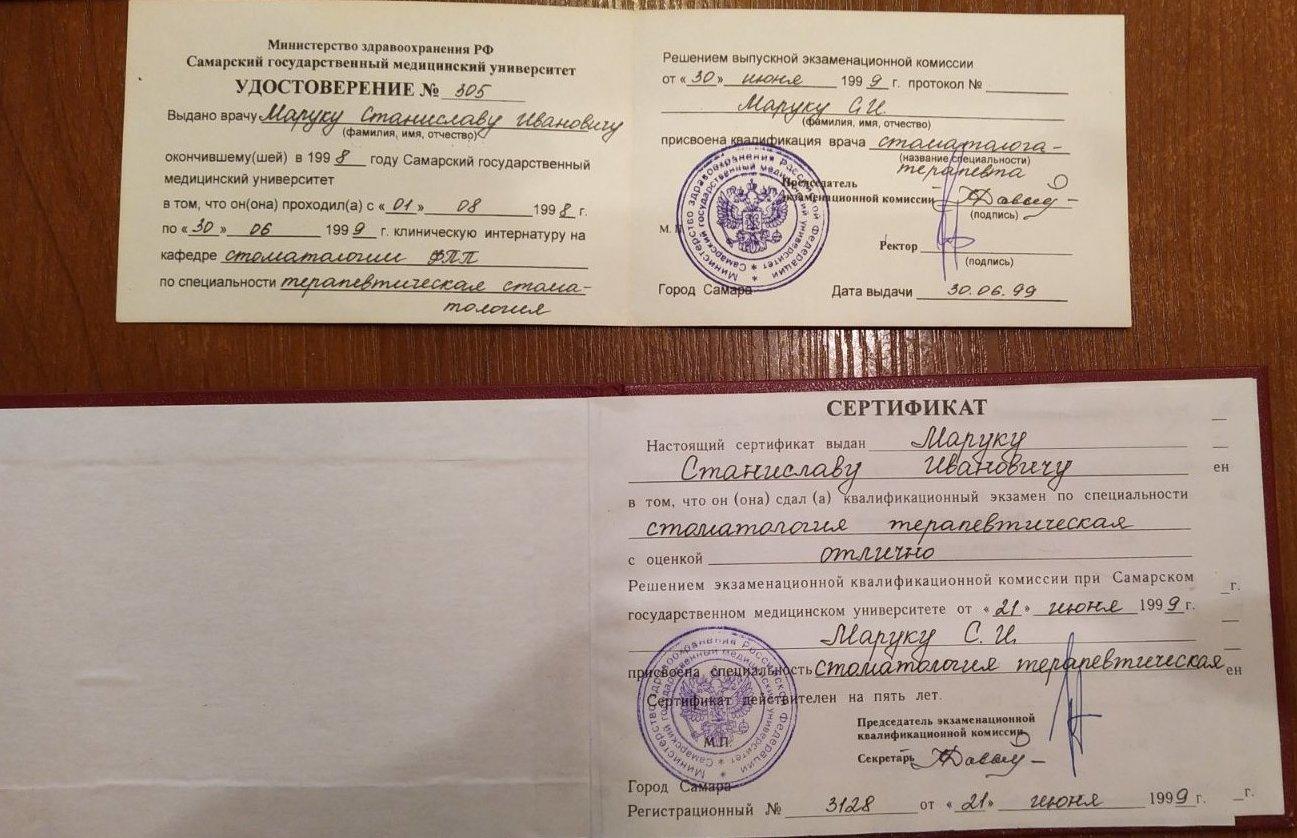 Министерство здравоохранения РФ
Самарский государственный медицинский университет
УДОСТОВЕРЕНИЕ № 305
Выдано врачу Маруку Станиславу Ивановичу
(фамилия, имя, отчество)
окончившему(шей) в 1998 году Самарский государственный
медицинский университет
в том, что он(она) проходил(а) с «01» 08 1998 г.
по «30» 06 1999 г. клиническую интернатуру на
кафедре стоматологии ФПП
по специальности терапевтическая стома-
тология
Решением выпускной экзаменационной комиссии
от «30» июня 1999 г. протокол №
Маруку С.И.
(фамилия, имя, отчество)
присвоена квалификация врача стоматолога-
(название специальности)
терапевта
Председатель
экзаменационной комиссии
(подпись)
М. П.
Ректор
(подпись)
Город Самара
Дата выдачи 30.06.99
Министерство здравоохранения Российской Федерации
Самарский государственный медицинский университет
СЕРТИФИКАТ
Настоящий сертификат выдан Маруку
Станиславу Ивановичу
ен
в том, что он (она) сдал (а) квалификационный экзамен по специальности
стоматология терапевтическая
с оценкой отлично
Решением экзаменационной квалификационной комиссии при Самарском
г.
государственном медицинском университете от «21» июня 1999 г.
Маруку С. И.
присвоена специальность стоматология терапевтическая
ен
Сертификат действителен на пять лет.
Председатель экзаменационной
квалификационной комиссии
М.П.
Секретарь
Город Самара
Регистрационный № 3128 от «21» июня 1999 г.
г.
Министерство здравоохранения Российской Федерации
Самарский государственный медицинский университет